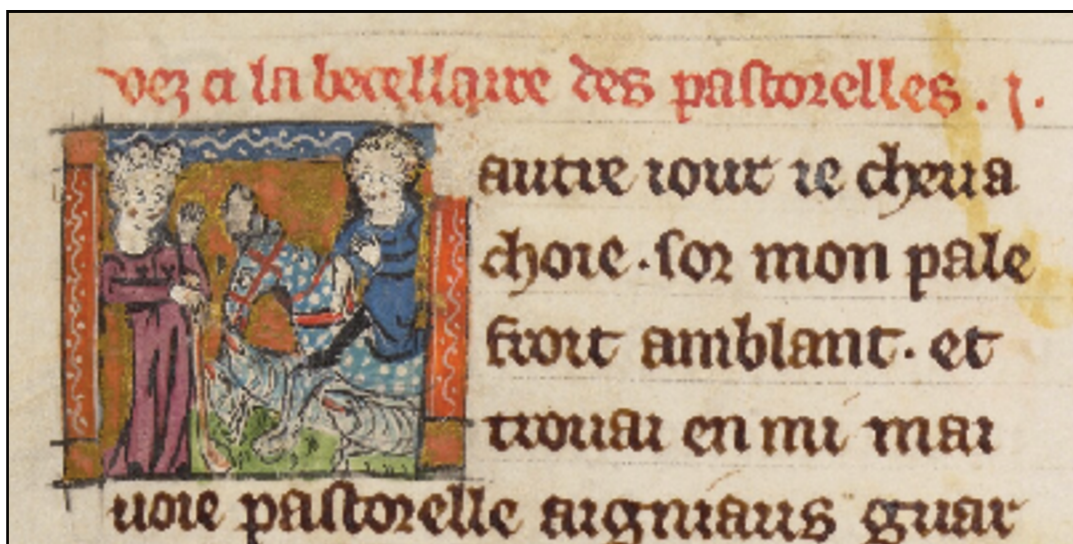 vez ci la becellaire des pastorelles . j .
autre iour ie cheua
choie . sor mon pale
froit amblant . et
trouai en mi mai
uoie pastorelle aigniaus guar